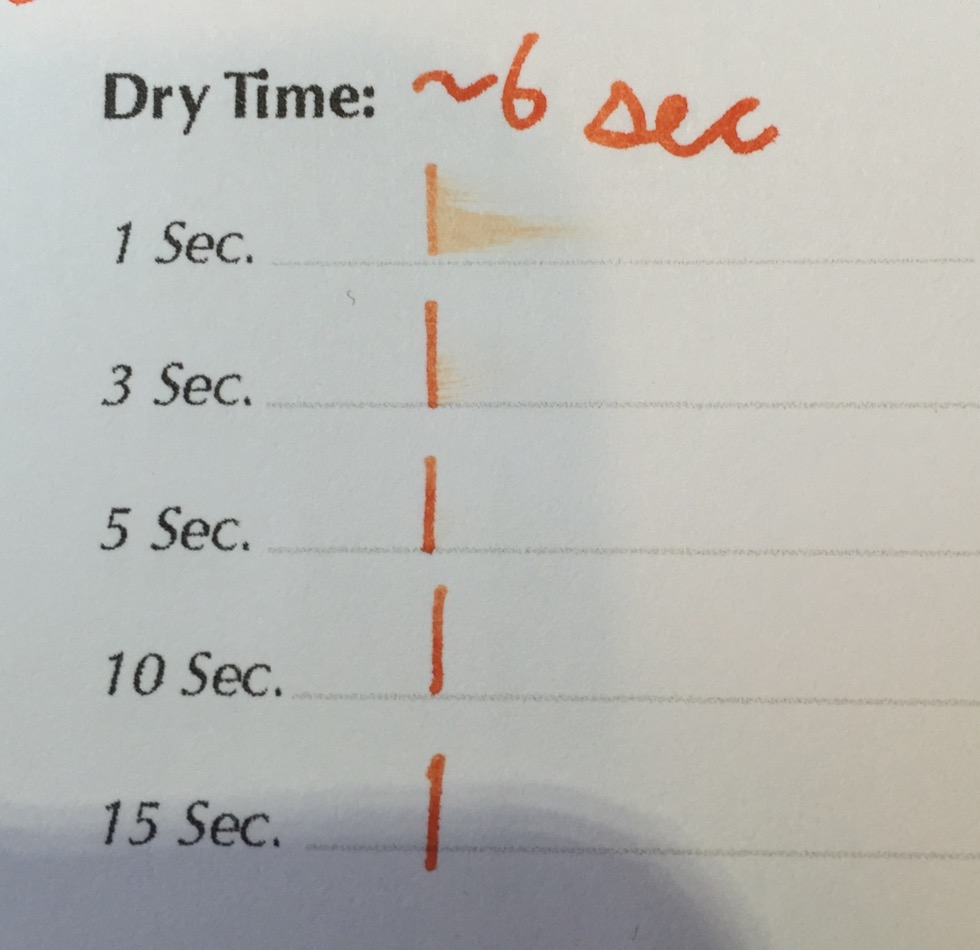 Dry Time: ~6 sec
1 Sec.
3 Sec.
5 Sec.
10 Sec.
15 Sec.